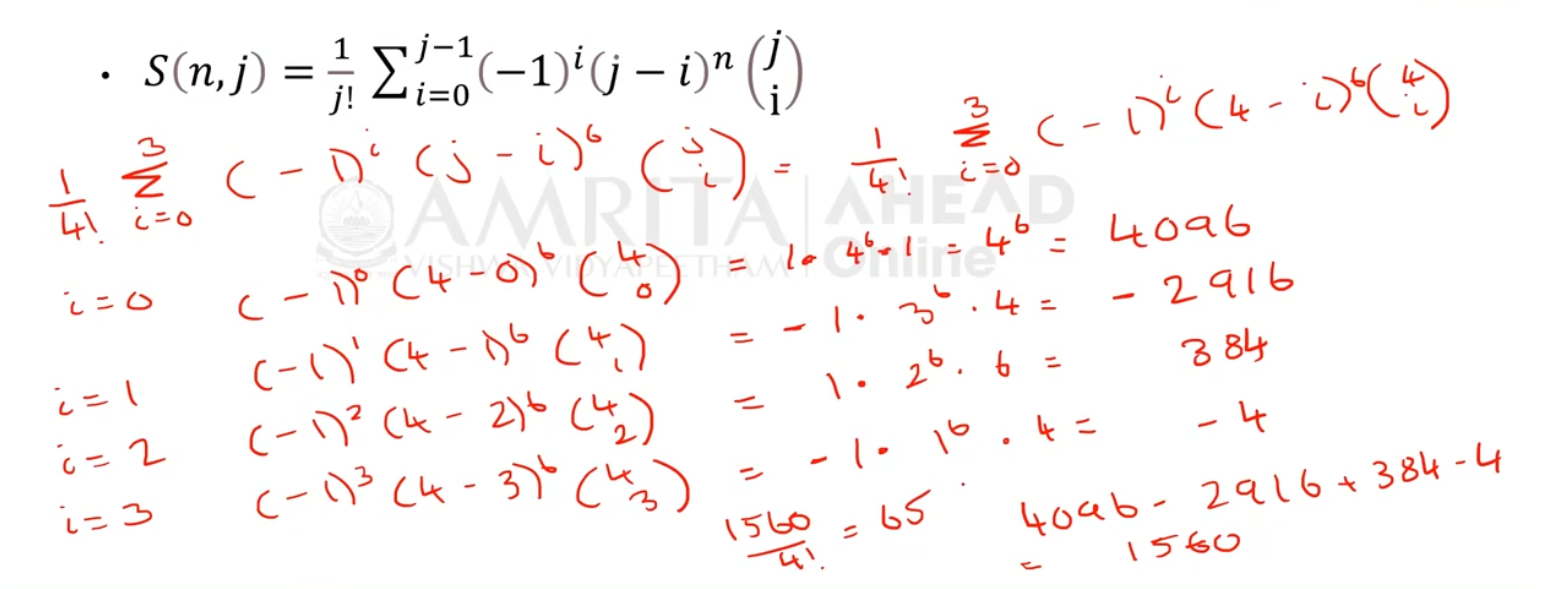 • S(n, j) = \frac{1}{j!} \sum_{i=0}^{j-1} (-1)^i (j - i)^n \binom{j}{i}
\frac{1}{4!} \sum_{i=0}^{3} (-1)^i (j - i)^6 \binom{j}{i} = \frac{1}{4!} \sum_{i=0}^{3} (-1)^i (4 - i)^6 \binom{4}{i}
AMRITA | AHEAD
VISHWA VIDYAPEETHAM | Online
i = 0 (-1)^0 (4-0)^6 \binom{4}{0} = 1 \cdot 4^6 \cdot 1 = 4^6 = 4096
i = 1 (-1)^1 (4-1)^6 \binom{4}{1} = -1 \cdot 3^6 \cdot 4 = -2916
i = 2 (-1)^2 (4-2)^6 \binom{4}{2} = 1 \cdot 2^6 \cdot 6 = 384
i = 3 (-1)^3 (4-3)^6 \binom{4}{3} = -1 \cdot 1^6 \cdot 4 = -4
\frac{1560}{4!} = 65
4096 - 2916 + 384 - 4
= 1560